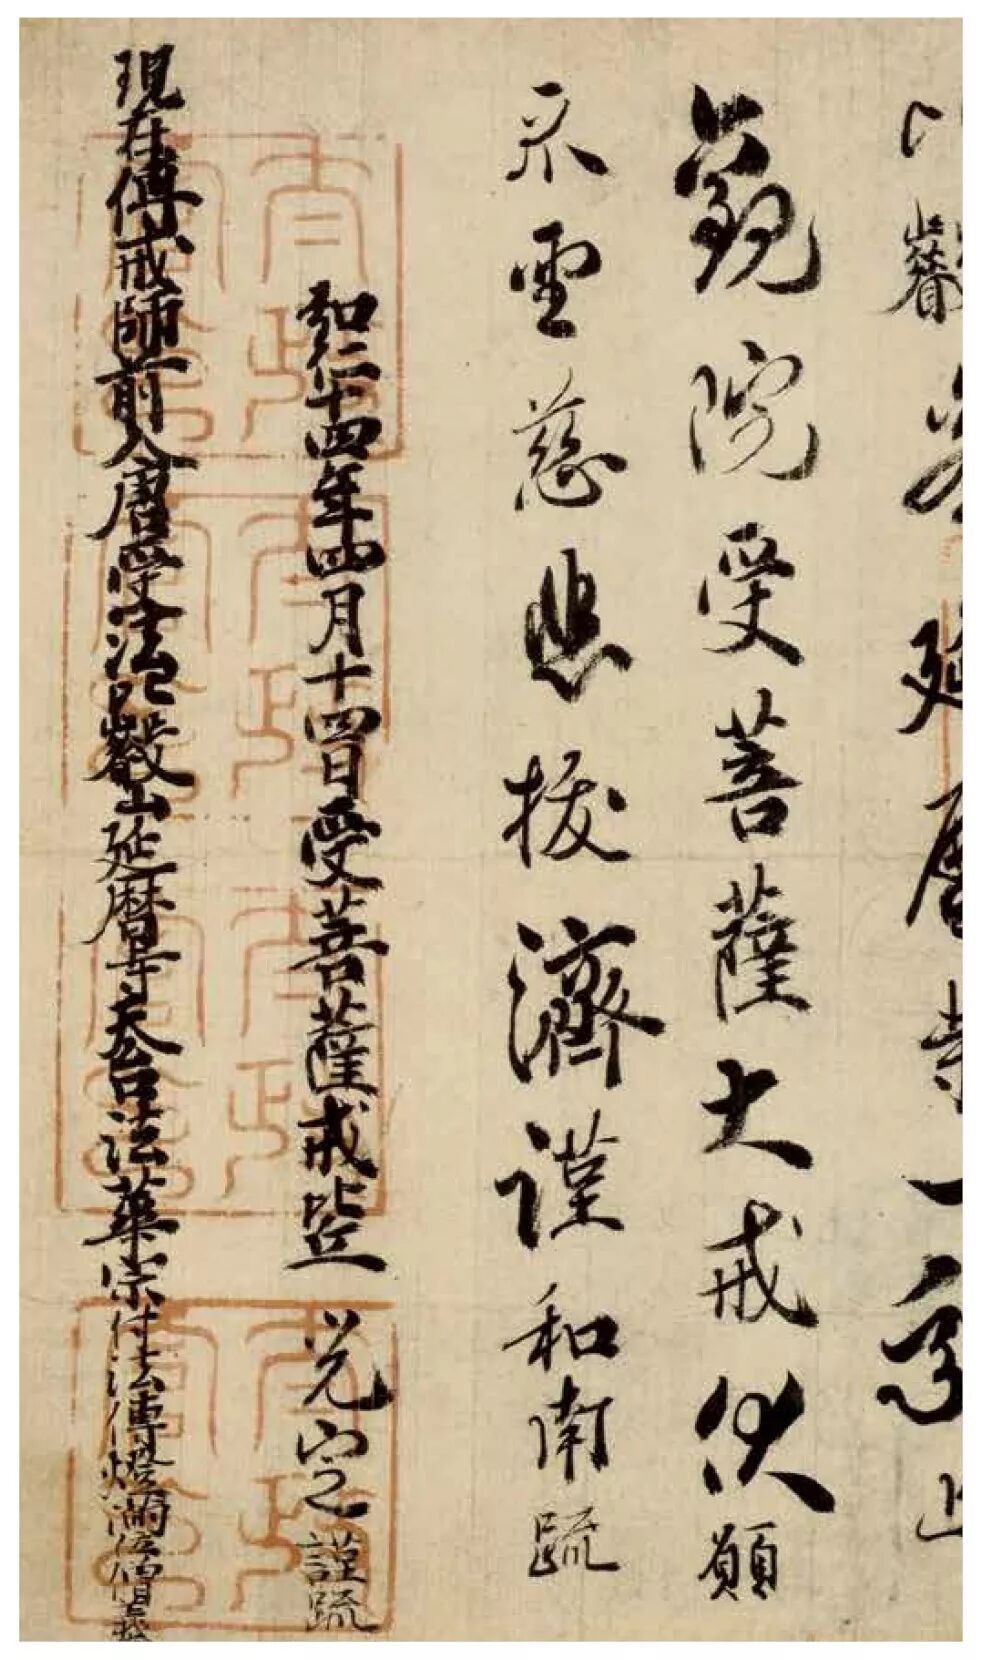 比叡峯延曆寺一乘止
觀院受菩薩大戒伏願
示垂慈悲拔濟謹和南疏
弘仁十四年四月十四日受菩薩戒比丘光定謹疏
現在傳戒師前入唐受法比叡山延曆寺天台法華宗付法傳燈滿位僧義